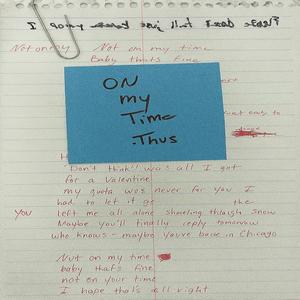 Not on my Not on my time
Baby thats fine
ON
my
Time
.Thus
Don't think I was all I got
for a Valentine
my quota was never for you I
had to let it go the
You left me all alone shoveling through snow
Maybe you'll finally reply tomorrow
who knows - maybe you're back in Chicago
Not on my time
baby thats fine
not on your time
I hope thats all right